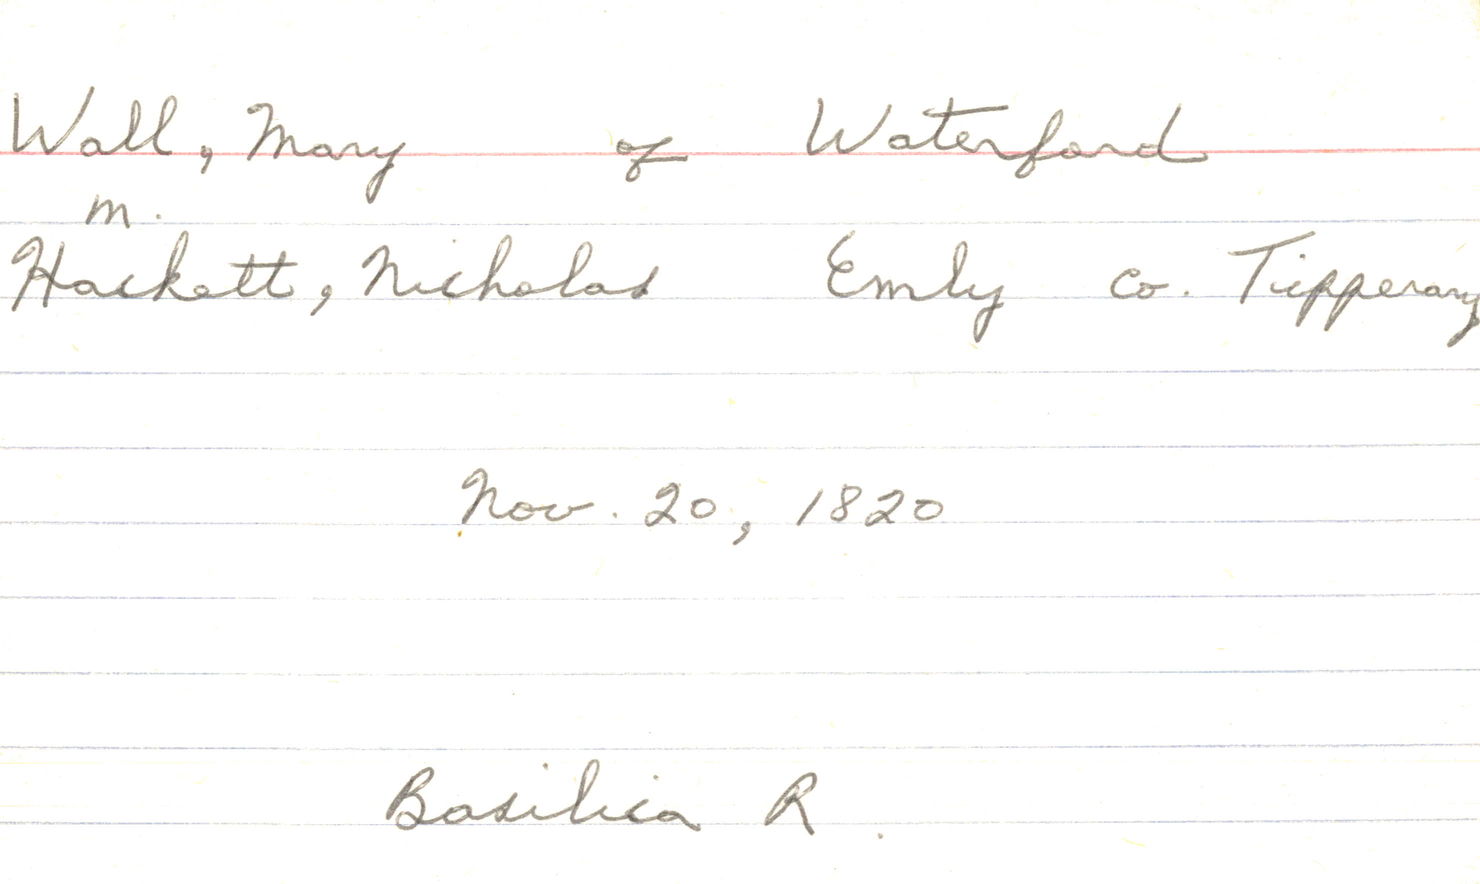 Wall, Mary of Waterford
m.
Hackett, Nicholas Emly co. Tipperary
Nov. 20, 1820
Basilica R.